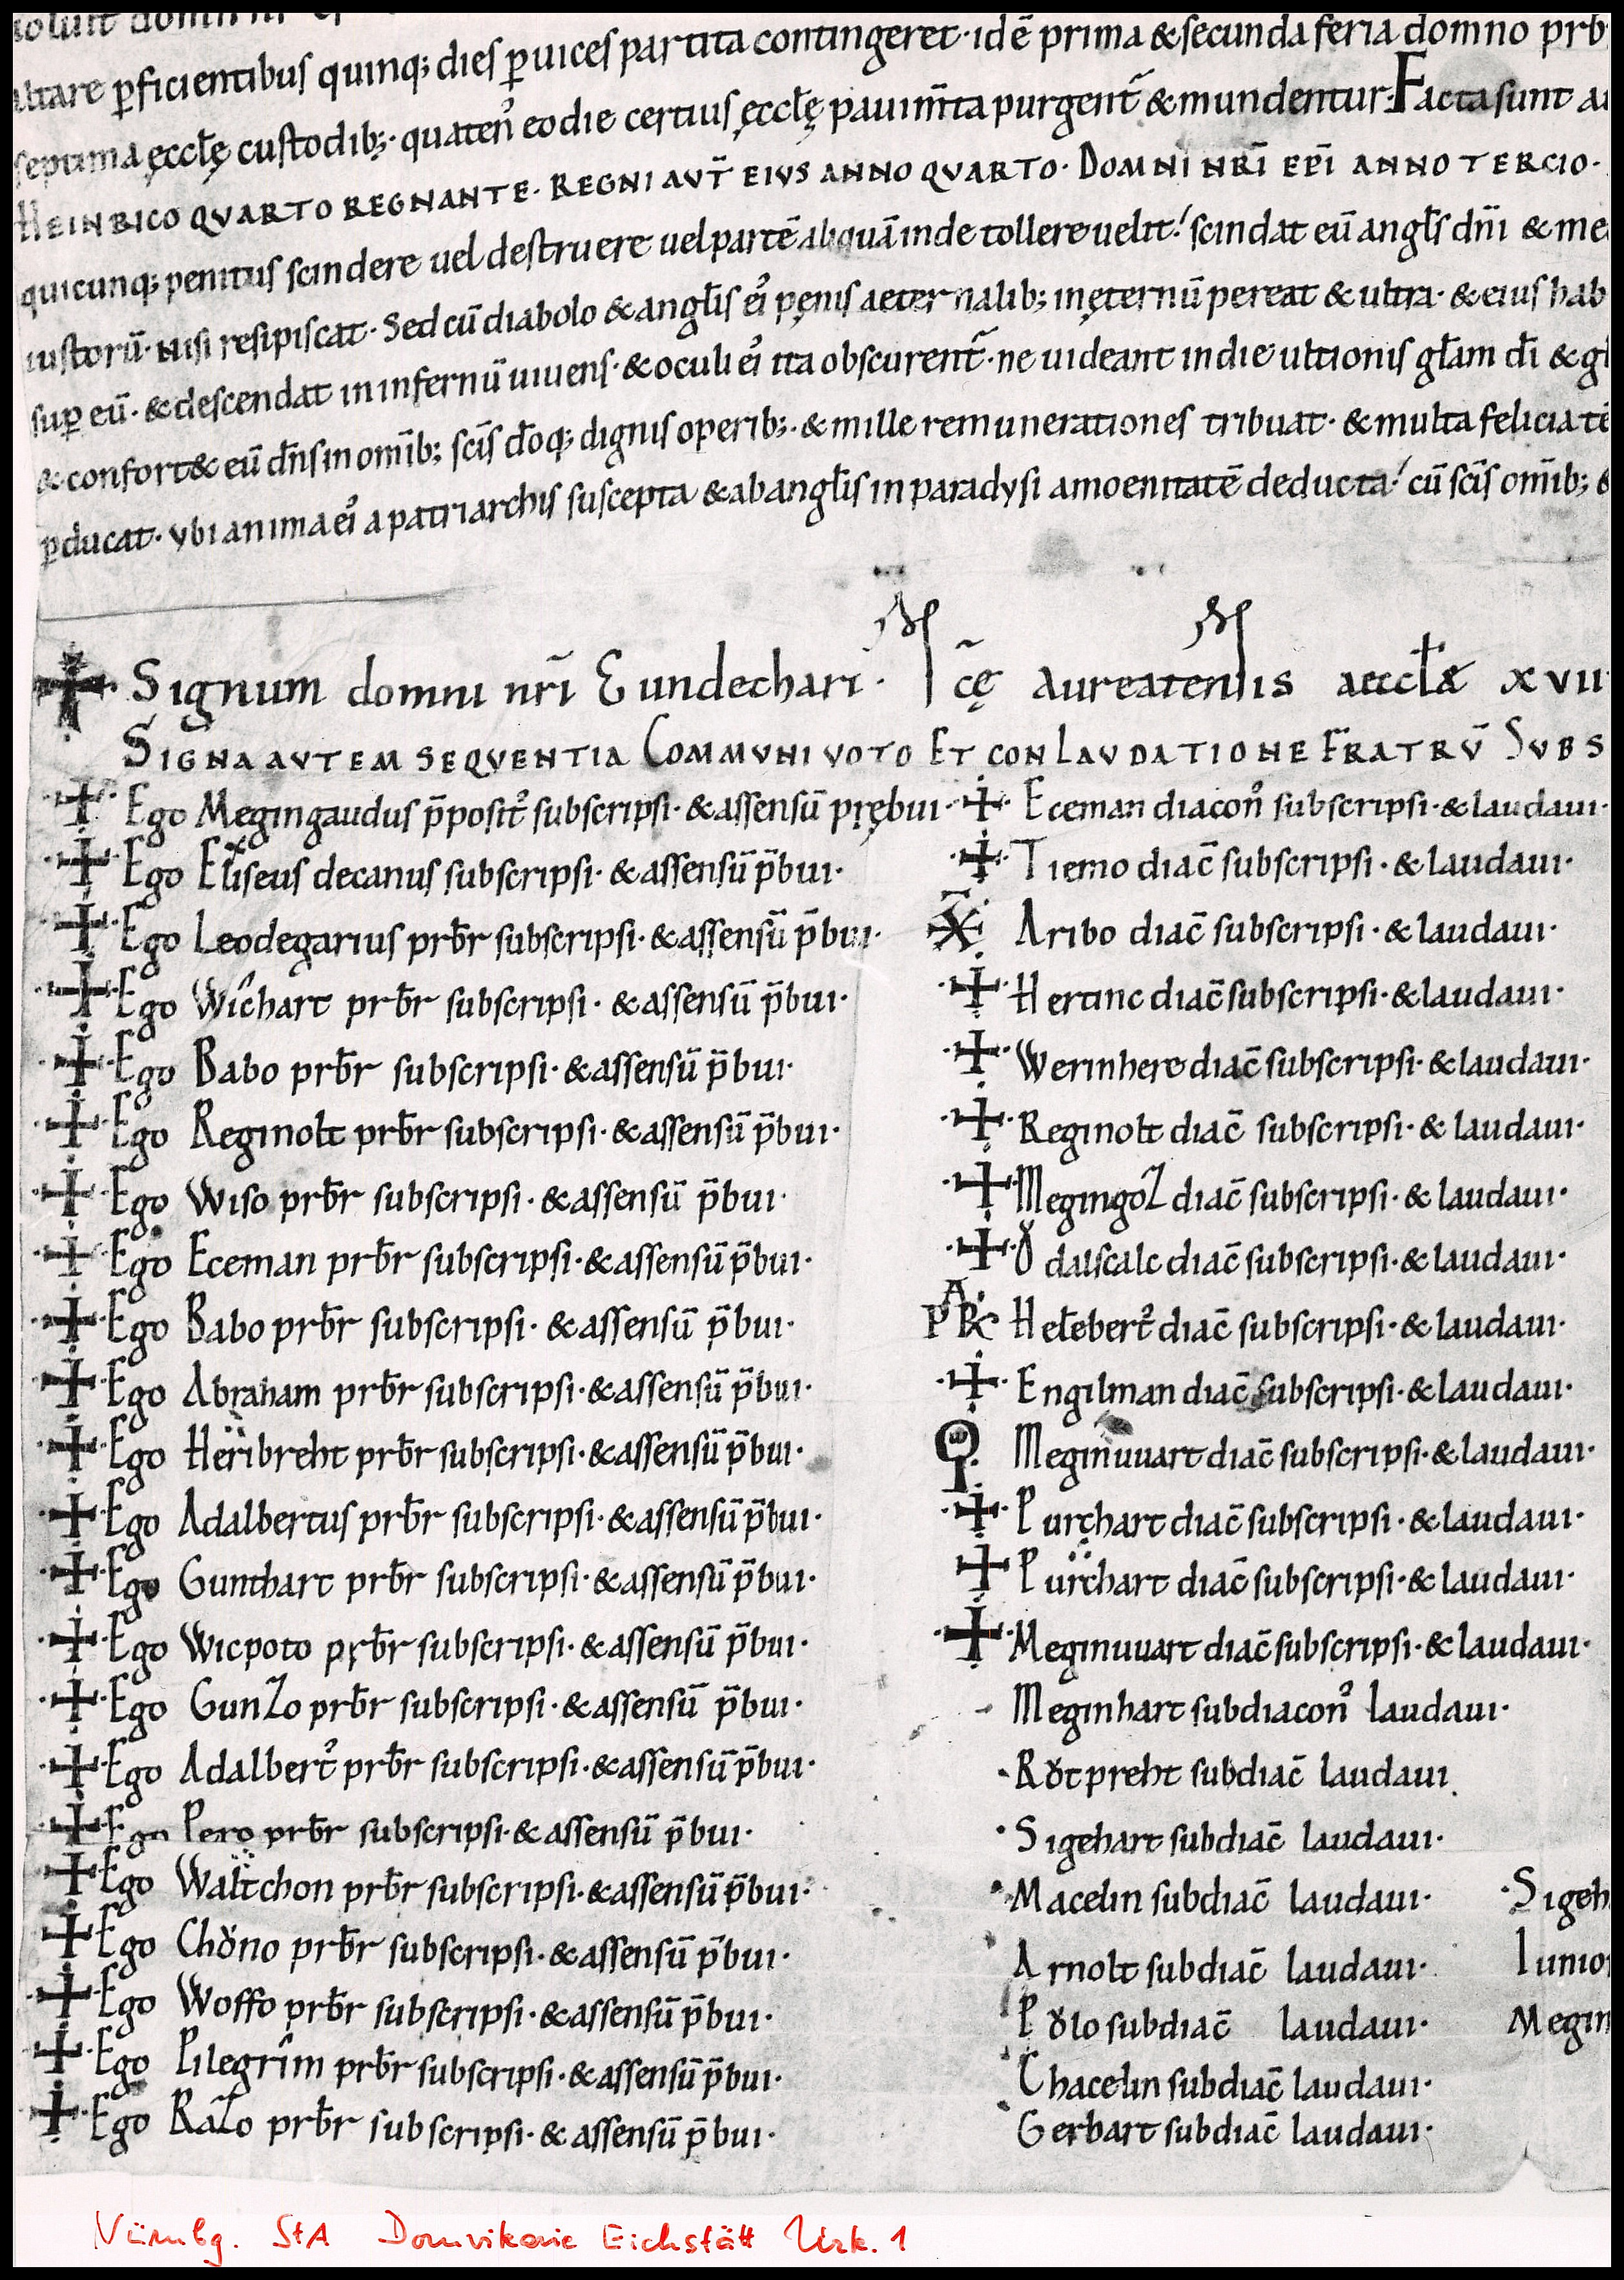 altare p̄ficientibus quinq; dies p̄ uices partita contingeret · idē prima & secunda feria domno prb
septima ęccłę custodib; · quaten᾽ eo die certius ęccłę pauim̄ta purgent̄ & mundentur · Facta sunt
HEINRICO QVARTO REGNANTE · REGNI AVT̄ EIVS ANNO QVARTO · DOMNI NR̄I EP̄I ANNO TERCIO ·
quicunq; penitus scindere uel destruere uel partē aliquā inde tollere uelit · scindat eū angłs dn̄i &
iustorū · nisi resipiscat · Sed cū diabolo & angłis ei᾽ pęnis aeternalib; in ęternū pereat & ultra · & eius hab
sup̄ eū · & descendat in infernū uiuens · & oculi ei᾽ ita obscurent̄ · ne uideant in die ultionis głam dī & gł
& confort& eū dn̄s in om̄ib; sc̄is dōq; dignis operib; · & mille remunerationes tribuat · & multa felicia tē
p̄ducat · ubi anima ei᾽ a patriarchis suscepta & ab angłis in paradysi amoenitatē deducta · cū sc̄is om̄ib;
Signum domni nr̄i Gundechari · sc̄ę aureatensis aeccłae xvii
SIGNA AVTEM SEQVENTIA COMMVNI VOTO ET CONLAVDATIONE FRATRV̄ SVBS
Ego Megingaudus p̄posit᾽ subscripsi · & assensū prębui ·
Ego Eliseus decanus subscripsi · & assensū p̄bui ·
Ego Leodegarius prb̄r subscripsi · & assensū p̄bui ·
Ego Wichart prb̄r subscripsi · & assensū p̄bui ·
Ego Babo prb̄r subscripsi · & assensū p̄bui ·
Ego Reginolt prb̄r subscripsi · & assensū p̄bui ·
Ego Wiso prb̄r subscripsi · & assensū p̄bui ·
Ego Eceman prb̄r subscripsi · & assensū p̄bui ·
Ego Babo prb̄r subscripsi · & assensū p̄bui ·
Ego Abraham prb̄r subscripsi · & assensū p̄bui ·
Ego Heribreht prb̄r subscripsi · & assensū p̄bui ·
Ego Adalbertus prb̄r subscripsi · & assensū p̄bui ·
Ego Gunthart prb̄r subscripsi · & assensū p̄bui ·
Ego Wicpoto prb̄r subscripsi · & assensū p̄bui ·
Ego Gunzo prb̄r subscripsi · & assensū p̄bui ·
Ego Adalbert᾽ prb̄r subscripsi · & assensū p̄bui ·
Ego Pero prb̄r subscripsi · & assensū p̄bui ·
Ego Waltchon prb̄r subscripsi · & assensū p̄bui ·
Ego Chǒno prb̄r subscripsi · & assensū p̄bui ·
Ego Woffo prb̄r subscripsi · & assensū p̄bui ·
Ego Pilegrîm prb̄r subscripsi · & assensū p̄bui ·
Ego Razo prb̄r subscripsi · & assensū p̄bui ·
Eceman diacon᾽ subscripsi · & laudaui ·
Tiemo diac̄ subscripsi · & laudaui ·
Aribo diac̄ subscripsi · & laudaui ·
Hertinc diac̄ subscripsi · & laudaui ·
Werinhere diac̄ subscripsi · & laudaui ·
Reginolt diac̄ subscripsi · & laudaui ·
Megingoz diac̄ subscripsi · & laudaui ·
Ǒdalscalc diac̄ subscripsi · & laudaui ·
Helebert᾽ diac̄ subscripsi · & laudaui ·
Engilman diac̄ subscripsi · & laudaui ·
Meginuuart diac̄ subscripsi · & laudaui ·
Purchart diac̄ subscripsi · & laudaui ·
Purchart diac̄ subscripsi · & laudaui ·
Meginuuart diac̄ subscripsi · & laudaui ·
Meginhart subdiacon᾽ laudaui ·
Rǒtpreht subdiac̄ laudaui
Sigehart subdiac̄ laudaui ·
Macelin subdiac̄ laudaui ·
Arnolt subdiac̄ laudaui ·
Pǒlo subdiac̄ laudaui ·
Chacelin subdiac̄ laudaui ·
Gerbart subdiac̄ laudaui ·
Sigeh
Iunio
Megin
Nürnbg. StA Domvikarie Eichstätt Urk. 1